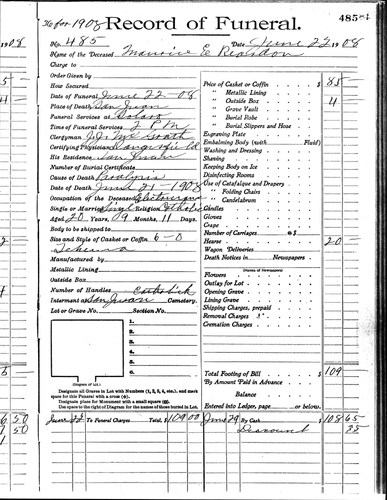 36 for 1908 Record of Funeral. 485
No. 485 Date June 22 1908
Name of the Deceased Maurice E Reardon
Charge to
Order Given by
How Secured
Date of Funeral June 22-08
Place of Death San Juan
Funeral Services at
Time of Funeral Services 2 P.M
Clergyman
Certifying Physician
His Residence San Juan
Number of Burial Certificate
Cause of Death Paralysis
Date of Death June 21-1908
Occupation of the Deceased
Single or Married Single Religion Catholic
Aged 20 Years, 9 Months, 11 Days
Body to be shipped to
Size and Style of Casket or Coffin 6-0
Manufactured by
Metallic Lining
Outside Box
Number of Handles Catholick
Interment at San Juan Cemetery.
Lot or Grave No. Section No.
1.
2.
3.
4.
5.
6.
(Diagram of Lot.)
Designate all Graves in Lot with Numbers (1, 2, 3, 4, etc.), and mark
space for this Funeral with a cross (+).
Designate place for Monument with a small square (□).
Use space to the right of Diagram for the names of those buried in Lot.
June 22 To Funeral Charges Total, $ 109 00
Price of Casket or Coffin $ 85
" Metallic Lining
" Outside Box 4
" Grave Vault
" Burial Robe
" Burial Slippers and Hose
Engraving Plate
Embalming Body (with Fluid)
Washing and Dressing
Shaving
Keeping Body on Ice
Disinfecting Rooms
Use of Catafalque and Drapery
" Folding Chairs
" Candelabrum
Candles
Gloves
Crape
Number of Carriages @ $
Hearse 20
Wagon Deliveries
Death Notices in Newspapers
(Names of Newspapers)
Flowers
Outlay for Lot
Opening Grave
Lining Grave
Shipping Charges, prepaid
Removal Charges
Cremation Charges
Total Footing of Bill $ 109
By Amount Paid in Advance
Balance
Entered into Ledger, page or below.
June 29 By Cash $ 108 65
Discount 35